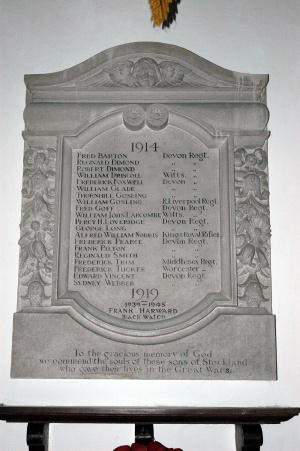 1914
Fred Barton Devon Regt.
Reginald Dimond " "
Robert Dimond " "
William Driscoll Wilts. "
Frederick Foxwell Devon "
William Glade " "
Thornhill Gosling " "
William Gosling R. Liverpool Regt.
Fred Goff Devon Regt.
William John Larcombe Wilts. "
Percy H. Loveridge Devon Regt.
George Long " "
Alfred William Norris Kings Royal Rifles
Frederick Pearce Devon Regt.
Frank Pilton " "
Reginald Smith " "
Frederick Trim Middlesex Regt.
Frederick Tucker Worcester "
Edward Vincent Devon Regt.
Sydney Webber " "
1919
1939–1945
Frank Harward
Black Watch
To the gracious memory of God
we commend the souls of these sons of Stockland
who gave their lives in the Great Wars.